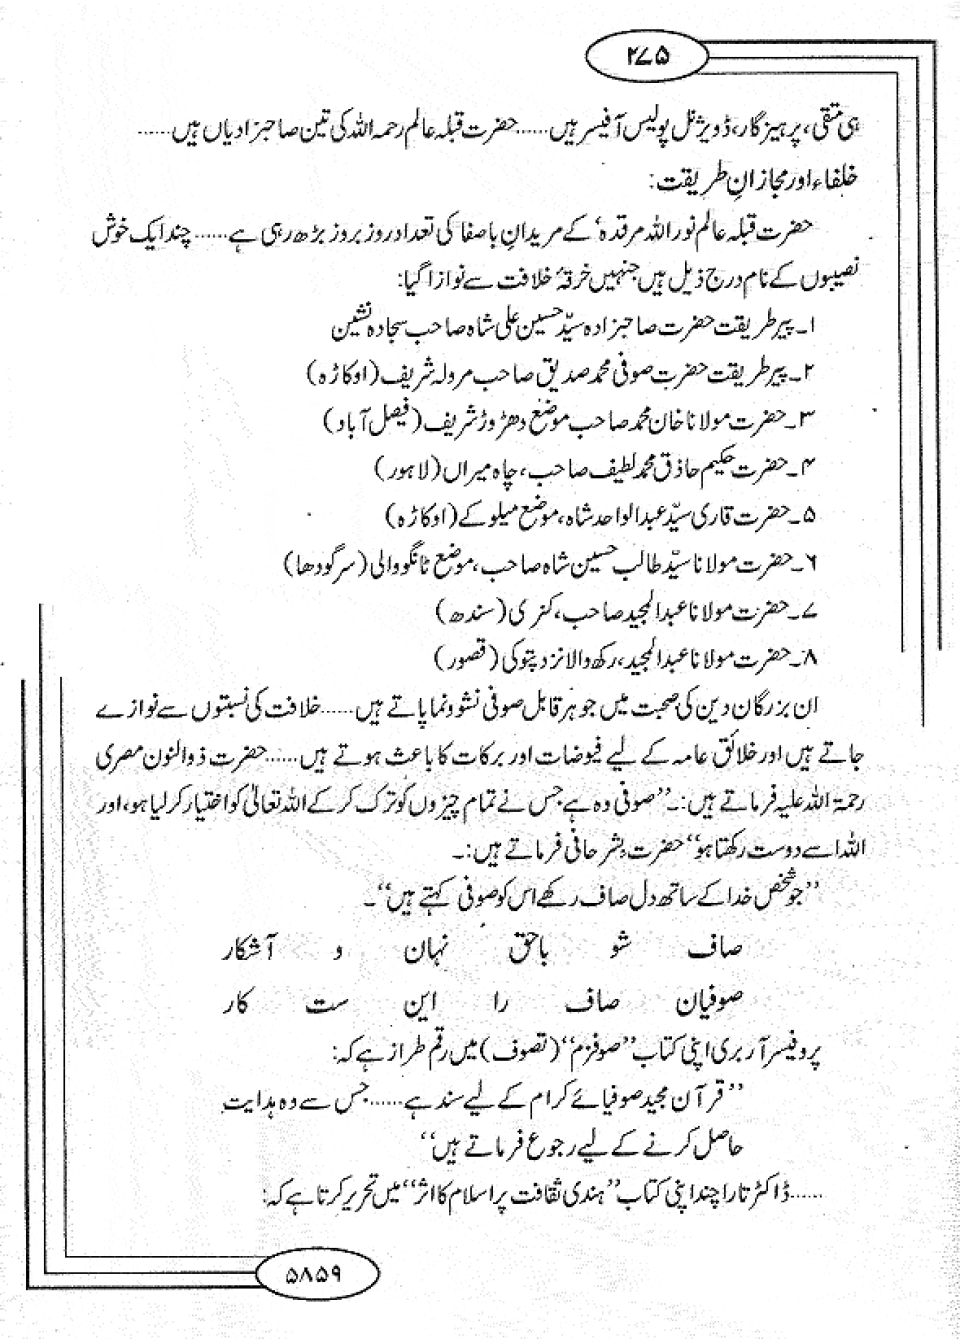 ۲۷۵
ہی متقی، پرہیزگار، ڈویژنل پولیس آفیسر ہیں...... حضرت قبلہ عالم رحمہ اللہ کی تین صاحبزادیاں ہیں......
خلفاء اور مجازانِ طریقت:
حضرت قبلہ عالم نور اللہ مرقدہٗ کے مریدانِ باصفا کی تعداد روز بروز بڑھ رہی ہے...... چند ایک خوش
نصیبوں کے نام درج ذیل ہیں جنہیں خرقۂ خلافت سے نوازا گیا:
۱۔ پیر طریقت حضرت صاحبزادہ سیّد حسین علی شاہ صاحب سجادہ نشین
۲۔ پیر طریقت حضرت صوفی محمد صدیق صاحب مرولہ شریف (اوکاڑہ)
۳۔ حضرت مولانا خان محمد صاحب موضع دھڑوڑ شریف (فیصل آباد)
۴۔ حضرت حکیم حاذق محمد لطیف صاحب، چاہ میراں (لاہور)
۵۔ حضرت قاری سیّد عبدالواحد شاہ، موضع میلوکے (اوکاڑہ)
۶۔ حضرت مولانا سیّد طالب حسین شاہ صاحب، موضع ٹانگووالی (سرگودھا)
۷۔ حضرت مولانا عبدالمجید صاحب، کنری (سندھ)
۸۔ حضرت مولانا عبدالمجید، رکھ والا نزد پتوکی (قصور)
ان بزرگان دین کی صحبت میں جوہر قابل صوفی نشوونما پاتے ہیں...... خلافت کی نسبتوں سے نوازے
جاتے ہیں اور خلائق عامہ کے لیے فیوضات اور برکات کا باعث ہوتے ہیں...... حضرت ذوالنون مصری
رحمۃ اللہ علیہ فرماتے ہیں:۔ ”صوفی وہ ہے جس نے تمام چیزوں کو ترک کر کے اللہ تعالیٰ کو اختیار کر لیا ہو، اور
اللہ اسے دوست رکھتا ہو“ حضرت بشر حافی فرماتے ہیں:۔
”جو شخص خدا کے ساتھ دل صاف رکھے اس کو صوفی کہتے ہیں“۔
صاف شو باحق نہان و آشکار
صوفیان صاف را این ست کار
پروفیسر آربری اپنی کتاب ”صوفزم“ (تصوف) میں رقم طراز ہے کہ:
”قرآن مجید صوفیائے کرام کے لیے سند ہے...... جس سے وہ ہدایت
حاصل کرنے کے لیے رجوع فرماتے ہیں“
......ڈاکٹر تارا چند اپنی کتاب ”ہندی ثقافت پر اسلام کا اثر“ میں تحریر کرتا ہے کہ:
۵۸۵۹